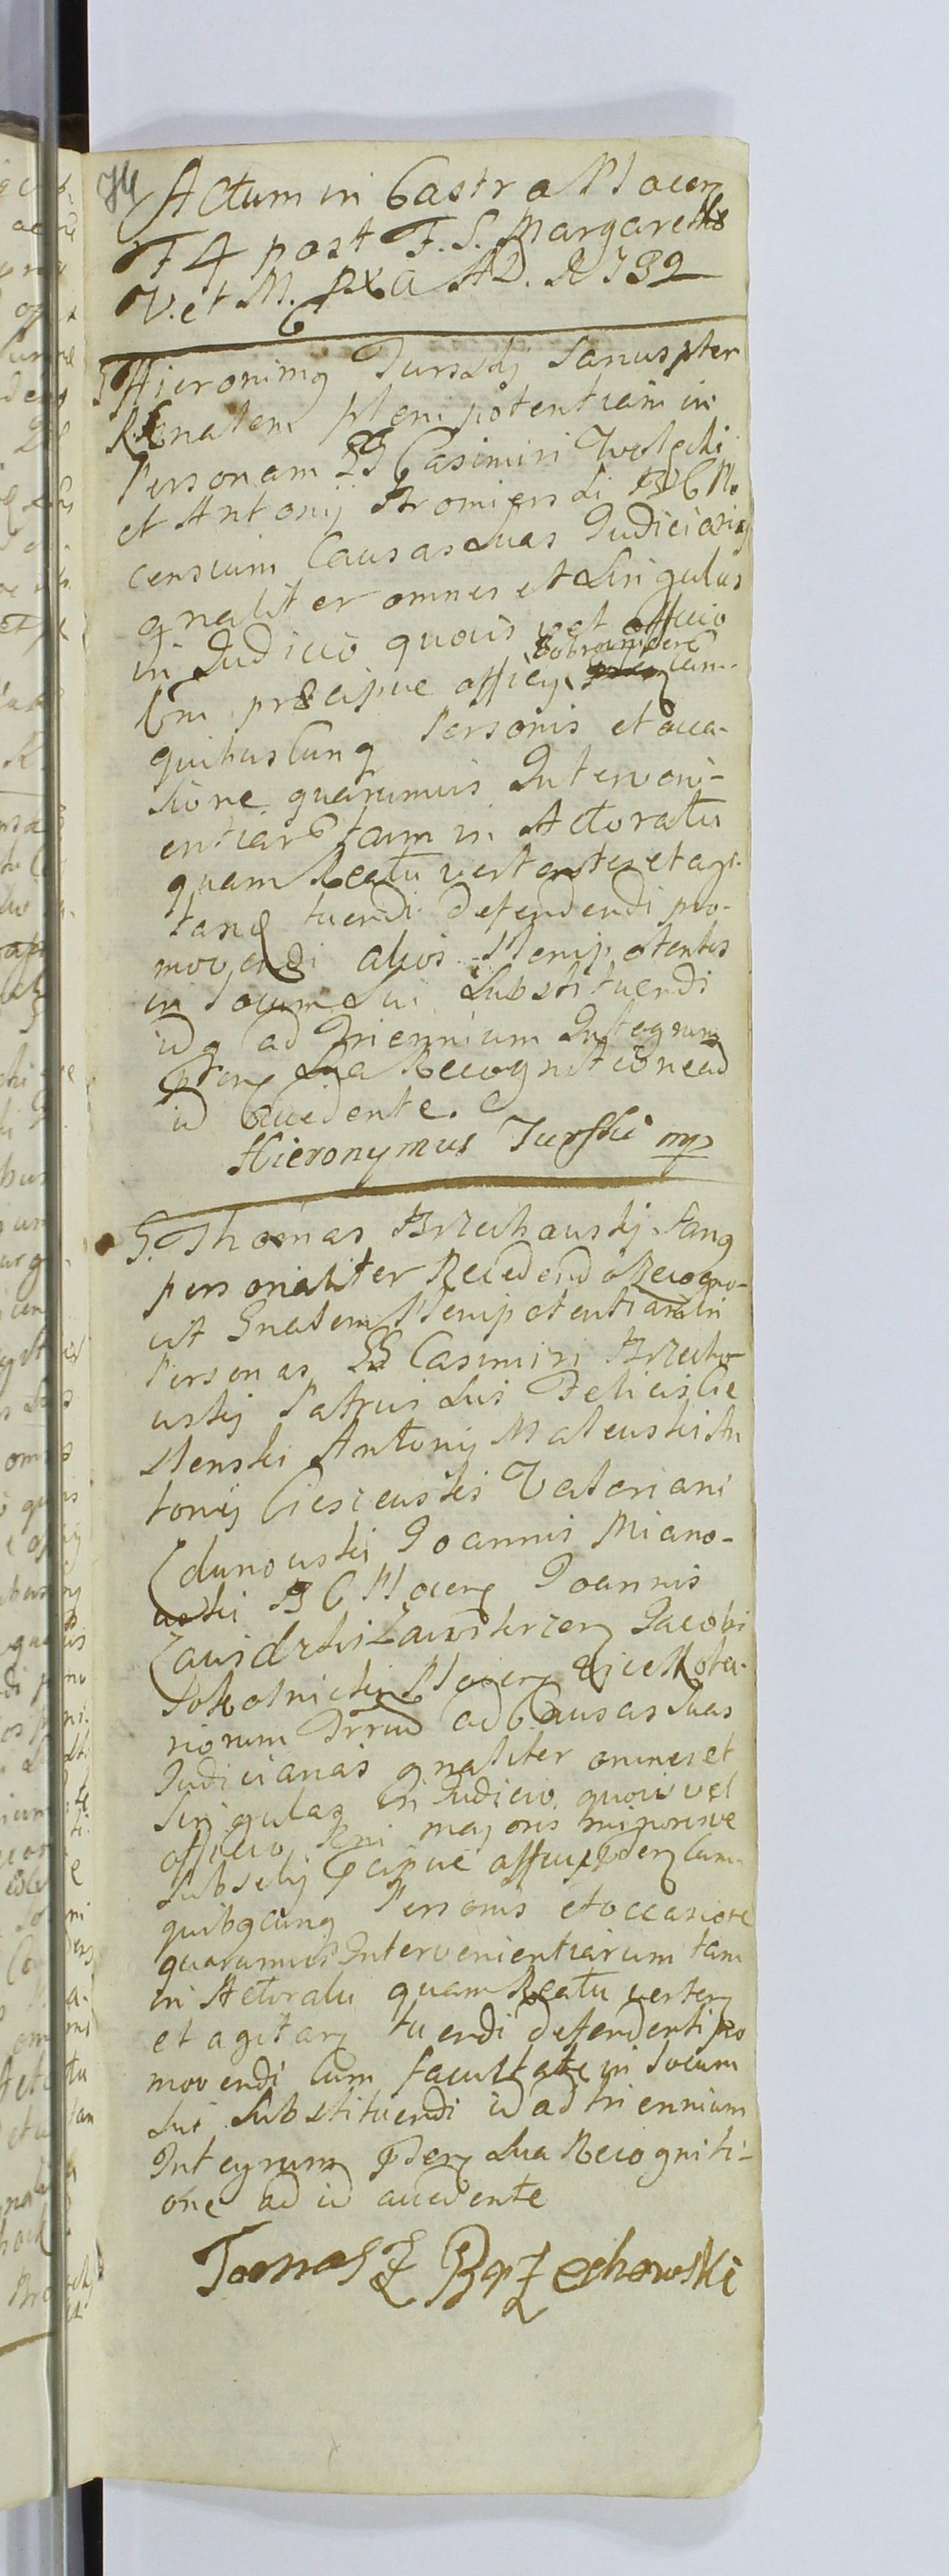 74
Actum in Castro Plocen
F 4 post F. S. Margarethæ
V. et M. pxa AD. 1739
G Hieronimg Turskij Sanus pter
R. Gnalem pleni potentiam in
Personam GG Casimiri Wolgcki
et Antonij Bromierski BCPlo
censium Causas Suas Judiciarias
gnaliter omnes et Singulas
in Judicio quovis vel officio
Gni præcipue officij Dobrzinsen Cum
quibuscung Personis et occa-
sione quarumvis Interveni-
entiar tam in Actoratu
quam Reatu verten et agi-
tand tuendi defendendi pro-
movendi alios Plenipotentes
in locum Sui Substituendi
idq ad Triennium Integrum
pter Sua Recognitione ad
id accedente.
Hieronymus Turski mp
G. Thomas Brzechowskij Sang
personaliter Recedendo Recogno-
vit Gnalem Plenipotentiam in
Personas GG Casimiri Brzecho-
wskij Patrui Sui Felicis Cie
slenski Antonij Malewski An
tonij Ciesiewski Valeriani
Zdunowski Joannis Miano-
wski B C Plocen Joannis
Zawidzki Zawskrzen Jacobi
Sokolnicki Plocen vice Nota-
riorum Trrum ad Causas Suas
Judiciarias gnaliter omnes et
Singulas in Judicio quovis vel
officio Rni majoris minorisve
Subselij pcipue officij pden Cum
quibgcung Personis et occasione
quarumvis Intervenientiarum tam
in Actoratu quam Reatu verten
et agitan tuendi defendendi pro
movendi Cum facultate in locum
Sui Substituendi id ad triennium
Integrum pden Sua Recogniti-
one ad id accedente
Tomasz Brzechowski